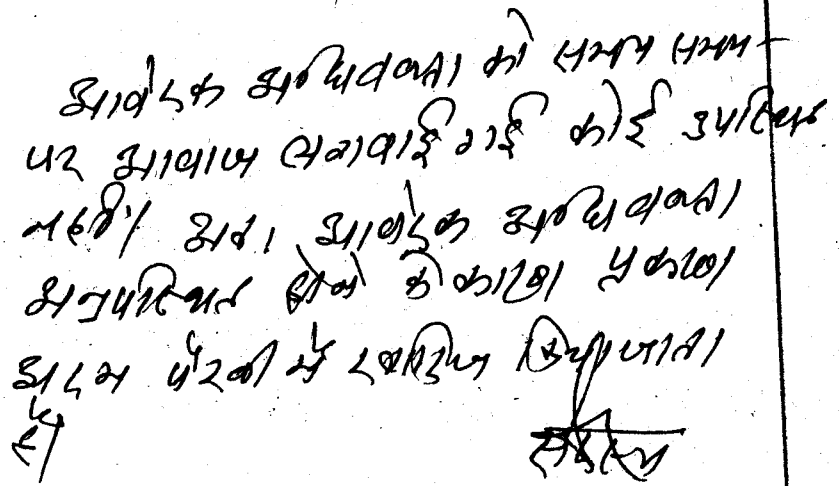 आवेदक अधिवक्ता को समय समय-
पर आवाज लगवाई गई कोई उपस्थित
नहीं। अतः आवेदक अधिवक्ता
अनुपस्थित होने के कारण प्रकरण
अदम पैरवी में खारिज किया जाता
है।
सदस्य